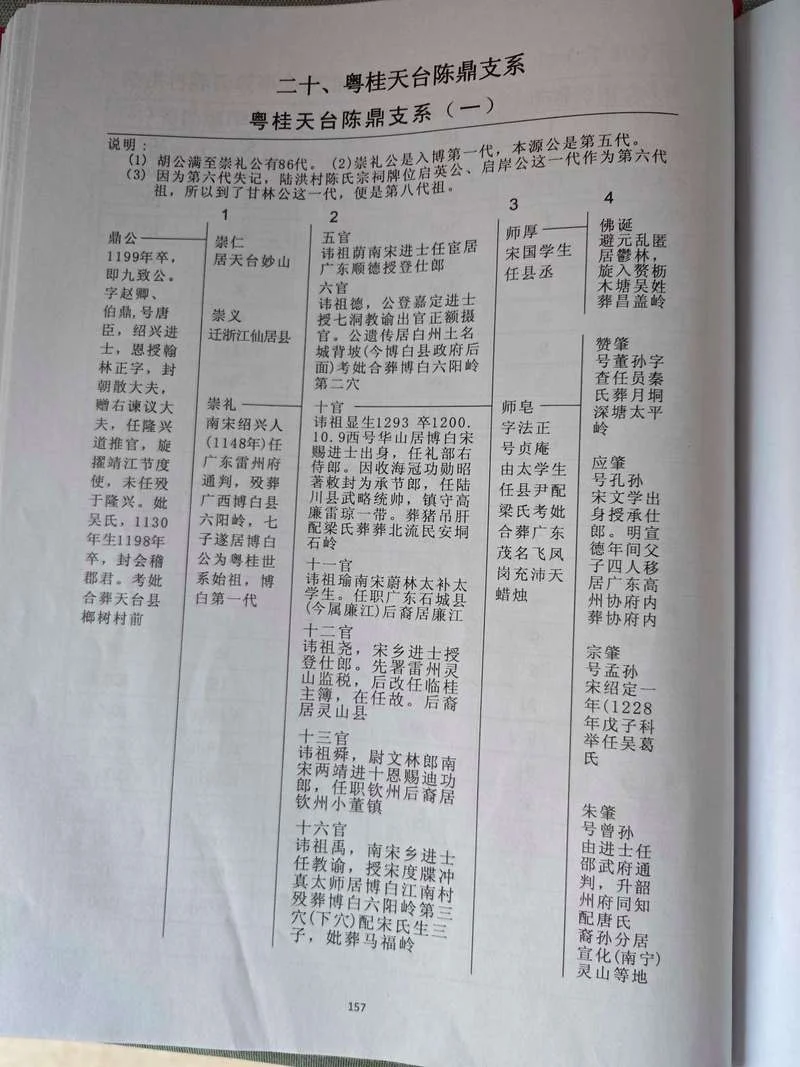 二十、粤桂天台陈鼎支系
粤桂天台陈鼎支系（一）
说明：
(1) 胡公满至崇礼公有86代。 (2)崇礼公是入博第一代，本源公是第五代。
(3) 因为第六代失记，陆洪村陈氏宗祠牌位启英公、启岸公这一代作为第六代
祖，所以到了甘林公这一代，便是第八代祖。
鼎公
1199年卒，
即九致公。
字赵卿、
伯鼎,号唐
臣，绍兴进
士，恩授翰
林正字，封
朝散大夫，
赠右谏议大
夫，任隆兴
道推官，旋
擢靖江节度
使，未任殁
于隆兴。妣
吴氏，1130
年生1198年
卒，封会稽
郡君。考妣
合葬天台县
榔树村前
1
崇仁
居天台妙山
崇义
迁浙江仙居县
崇礼
南宋绍兴人
(1148年)任
广东雷州府
通判，殁葬
广西博白县
六阳岭，七
子遂居博白
公为粤桂世
系始祖，博
白第一代
2
五官
讳祖荫南宋进士任宦居
广东顺德授登仕郎
六官
讳祖德，公登嘉定进士
授七洞教谕出官正额摄
官。公遗传居白州土名
城背坡(今博白县政府后
面)考妣合葬博白六阳岭
第二穴
十官
讳祖显生1293 卒1200.
10.9西号华山居博白宋
赐进士出身，任礼部右
侍郎。因收海冠功勋昭
著敕封为承节郎，任陆
川县武略统帅，镇守高
廉雷琼一带。葬猪吊肝
配梁氏葬葬北流民安垌
石岭
十一官
讳祖瑜南宋蔚林太补太
学生。任职广东石城县
(今属廉江)后裔居廉江
十二官
讳祖尧，宋乡进士授
登仕郎。先署雷州灵
山监税，后改任临桂
主簿，在任故。后裔
居灵山县
十三官
讳祖舜，尉文林郎南
宋两靖进十恩赐迪功
郎，任职钦州后裔居
钦州小董镇
十六官
讳祖禹，南宋乡进士
任教谕，授宋度牒冲
真太师居博白江南村
殁葬博白六阳岭第三
穴(下穴)配宋氏生三
子，妣葬马福岭
3
师厚
宋国学生
任县丞
师皂
字法正
号贞庵
由太学生
任县尹配
梁氏考妣
合葬广东
茂名飞凤
岗充沛天
蜡烛
4
佛诞
避元乱匿
居鬱林，
旋入赘枥
木塘吴姓
葬昌盖岭
赞肇
号董孙字
查任员秦
氏葬月垌
深塘太平
岭
应肇
号孔孙
宋文学出
身授承仕
郎。明宣
德年间父
子四人移
居广东高
州协府内
葬协府内
宗肇
号孟孙
宋绍定一
年(1228
年戊子科
举任吴葛
氏
朱肇
号曾孙
由进士任
邵武府通
判，升韶
州府同知
配唐氏
裔孙分居
宣化(南宁)
灵山等地
157